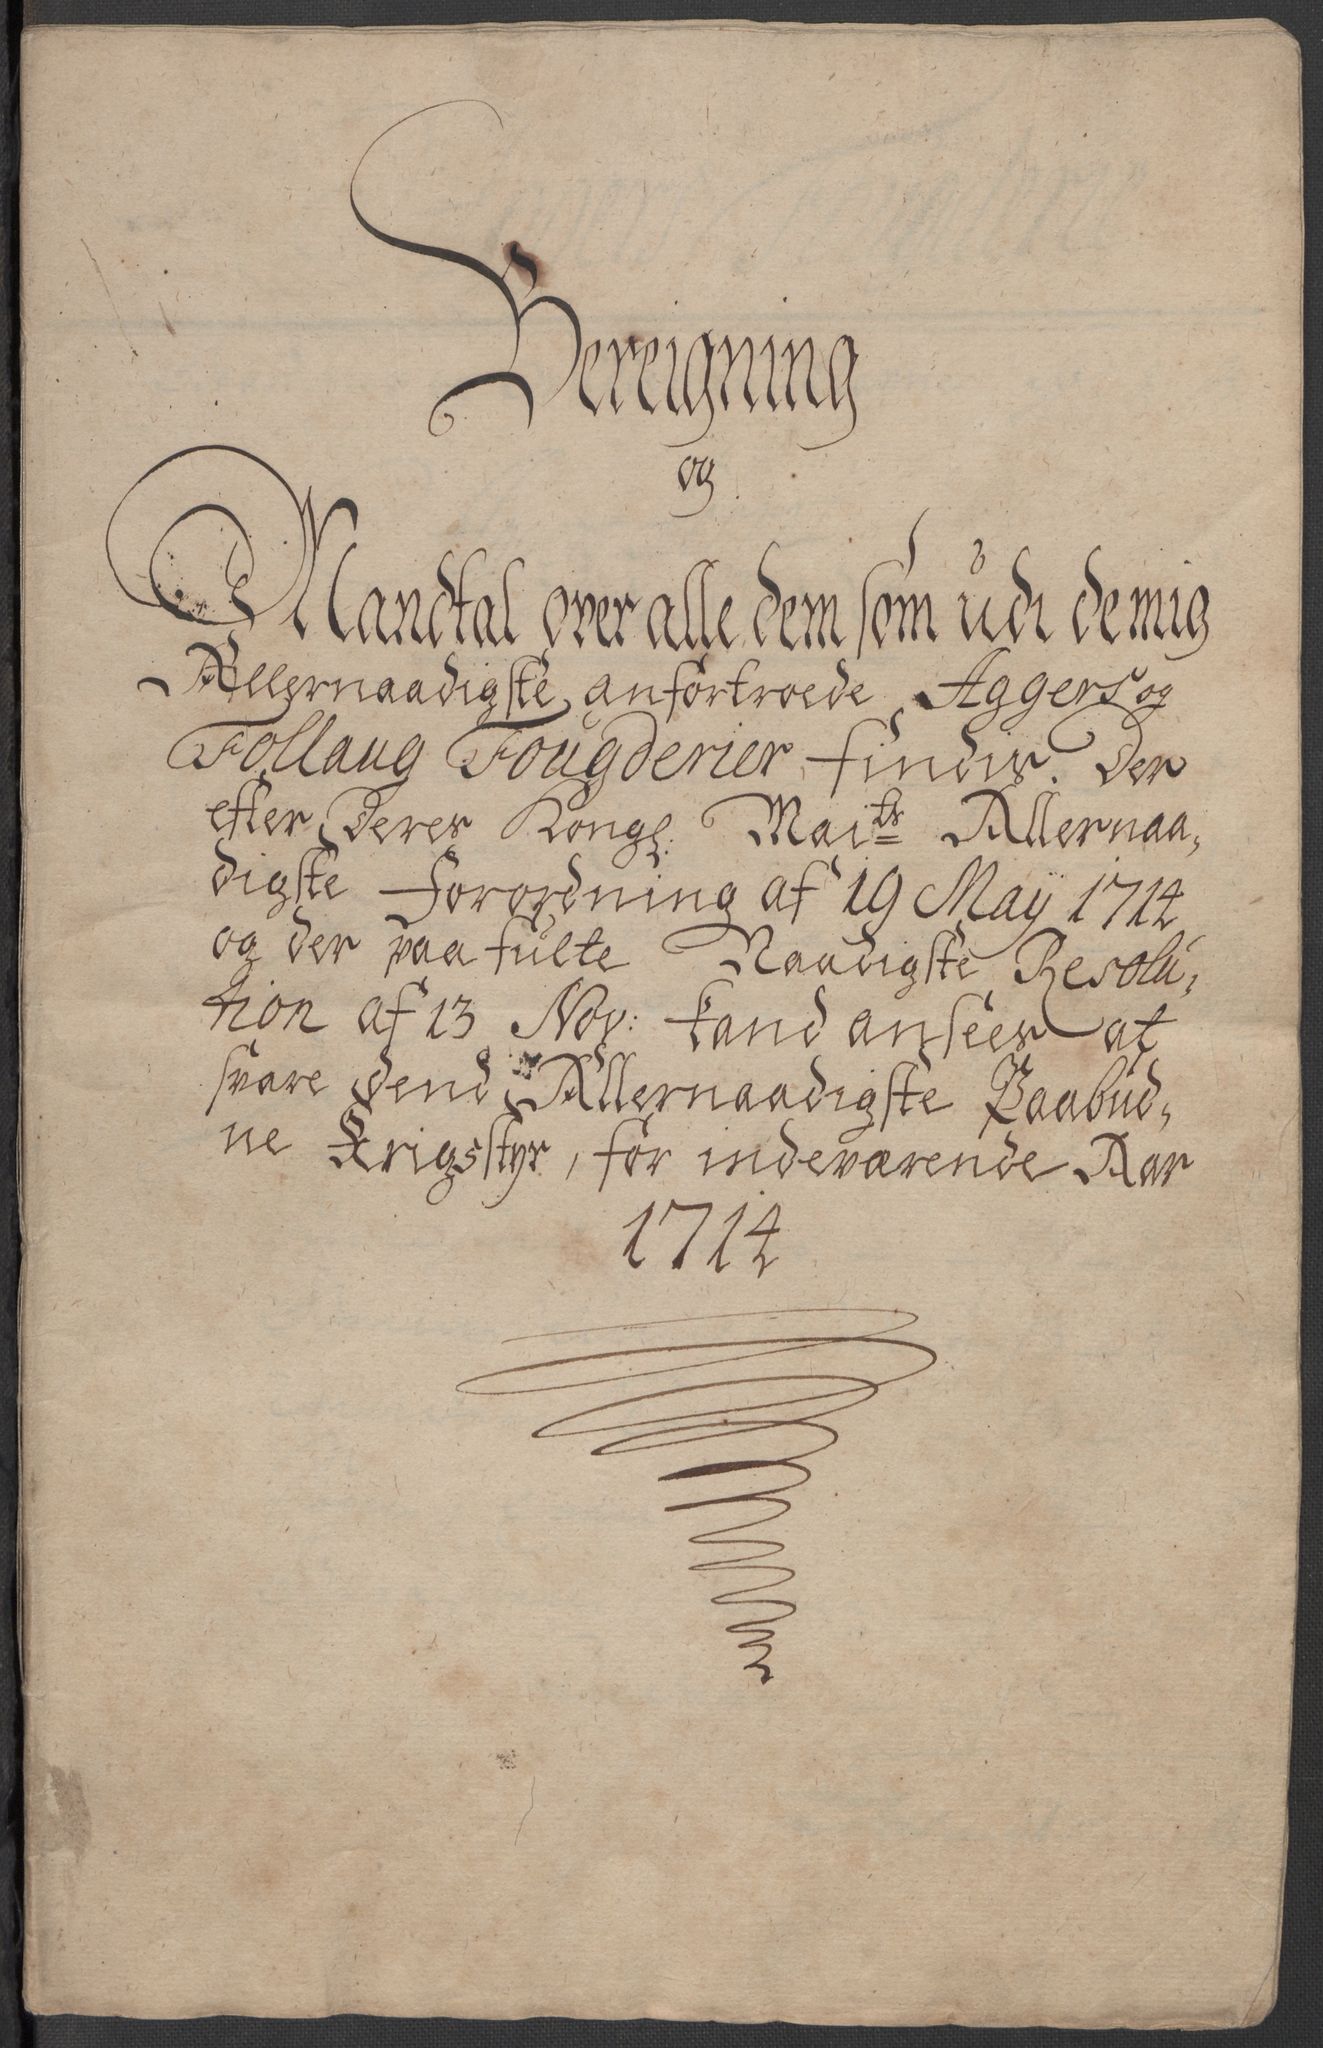 Bereigning
og
Mandtal over alle dem som udi de mig
Allernaadigste anfortroede Aggers og
Follaug Fougderier findis. Der
efter Deres Kongl: Mai:ts Allernaa,
digste Forordning af 19 Maÿ 1714
og der paa fulte Naadigste Resolu,
tion af 13 Nov: kand ansees at
svare dend Allernaadigste Paabud,
ne Krigsstyr, for indeværende Aar
1714